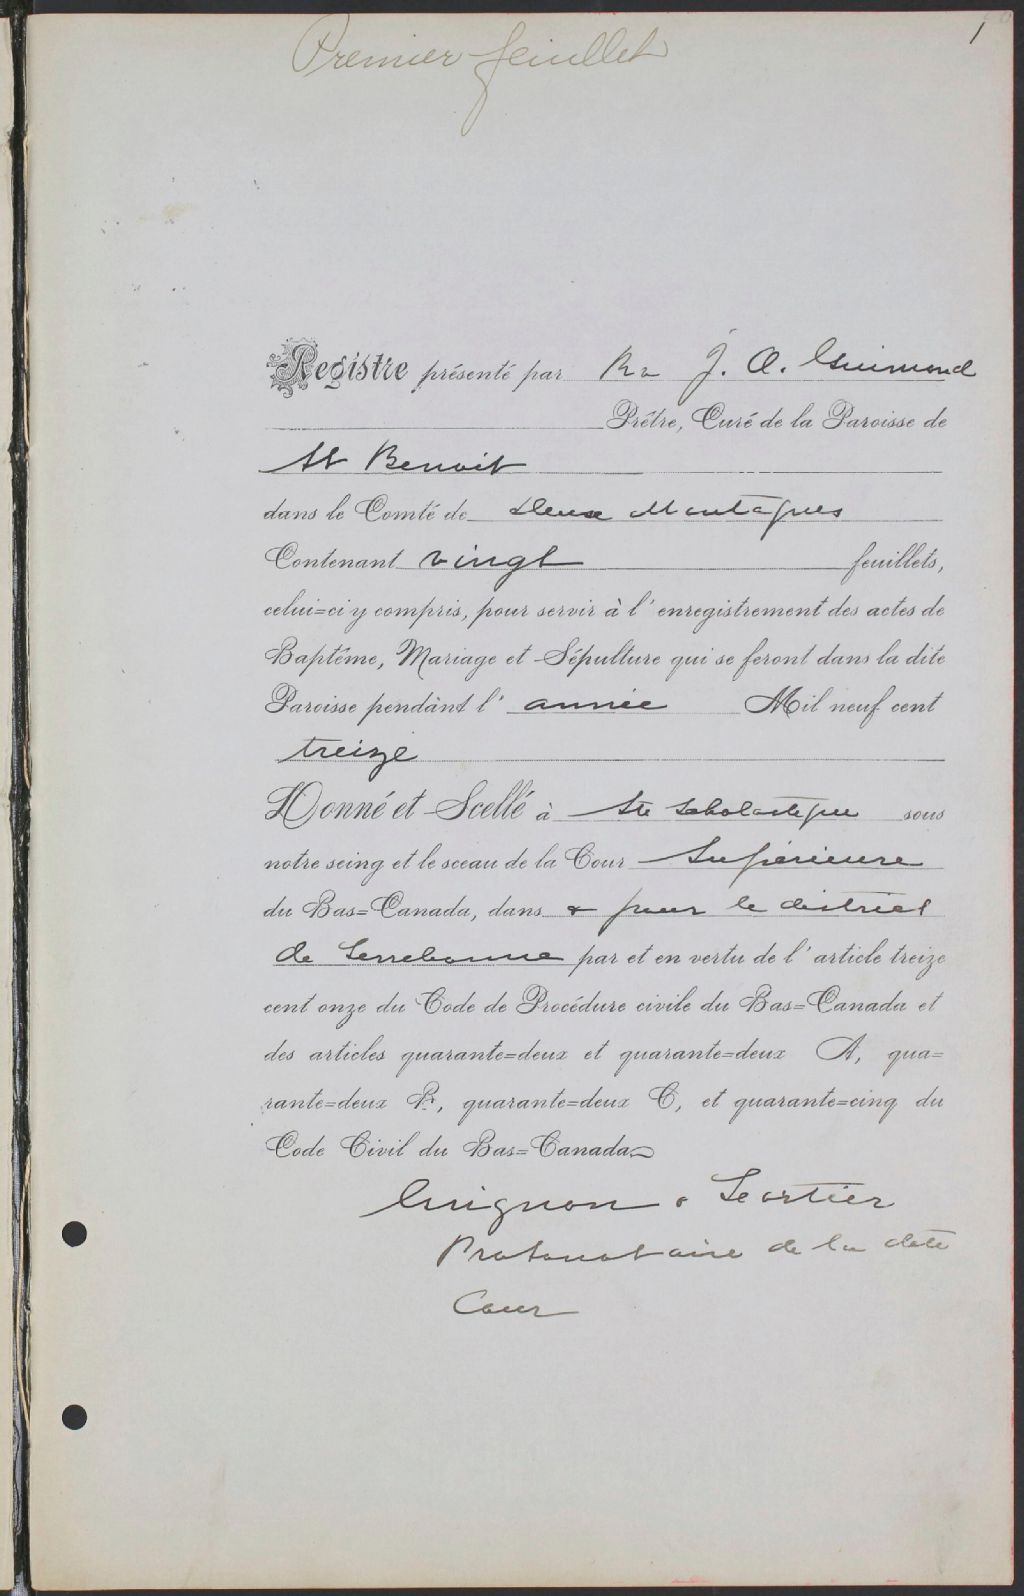 1
Premier feuillet
Registre présenté par Rv J. A. Guimond
Prêtre, Curé de la Paroisse de
St Benoit
dans le Comté de Deux Montagnes
Contenant vingt feuillets,
celui=ci y compris, pour servir à l'enregistrement des actes de
Baptême, Mariage et Sépulture qui se feront dans la dite
Paroisse pendant l'année Mil neuf cent
treize
Donné et Scellé à Ste Scholastique sous
notre seing et le sceau de la Cour Supérieure
du Bas=Canada, dans & pour le district
de Terrebonne par et en vertu de l'article treize
cent onze du Code de Procédure civile du Bas=Canada et
des articles quarante=deux et quarante=deux A, qua=
rante=deux B, quarante=deux C, et quarante=cinq du
Code Civil du Bas=Canada
Grignon & Fortier
Protonotaire de la dite
Cour